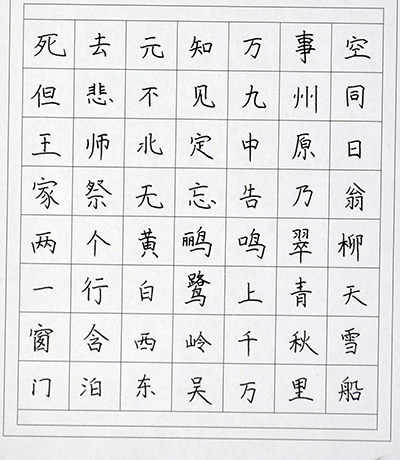 死去元知万事空
但悲不见九州同
王师北定中原日
家祭无忘告乃翁
两个黄鹂鸣翠柳
一行白鹭上青天
窗含西岭千秋雪
门泊东吴万里船